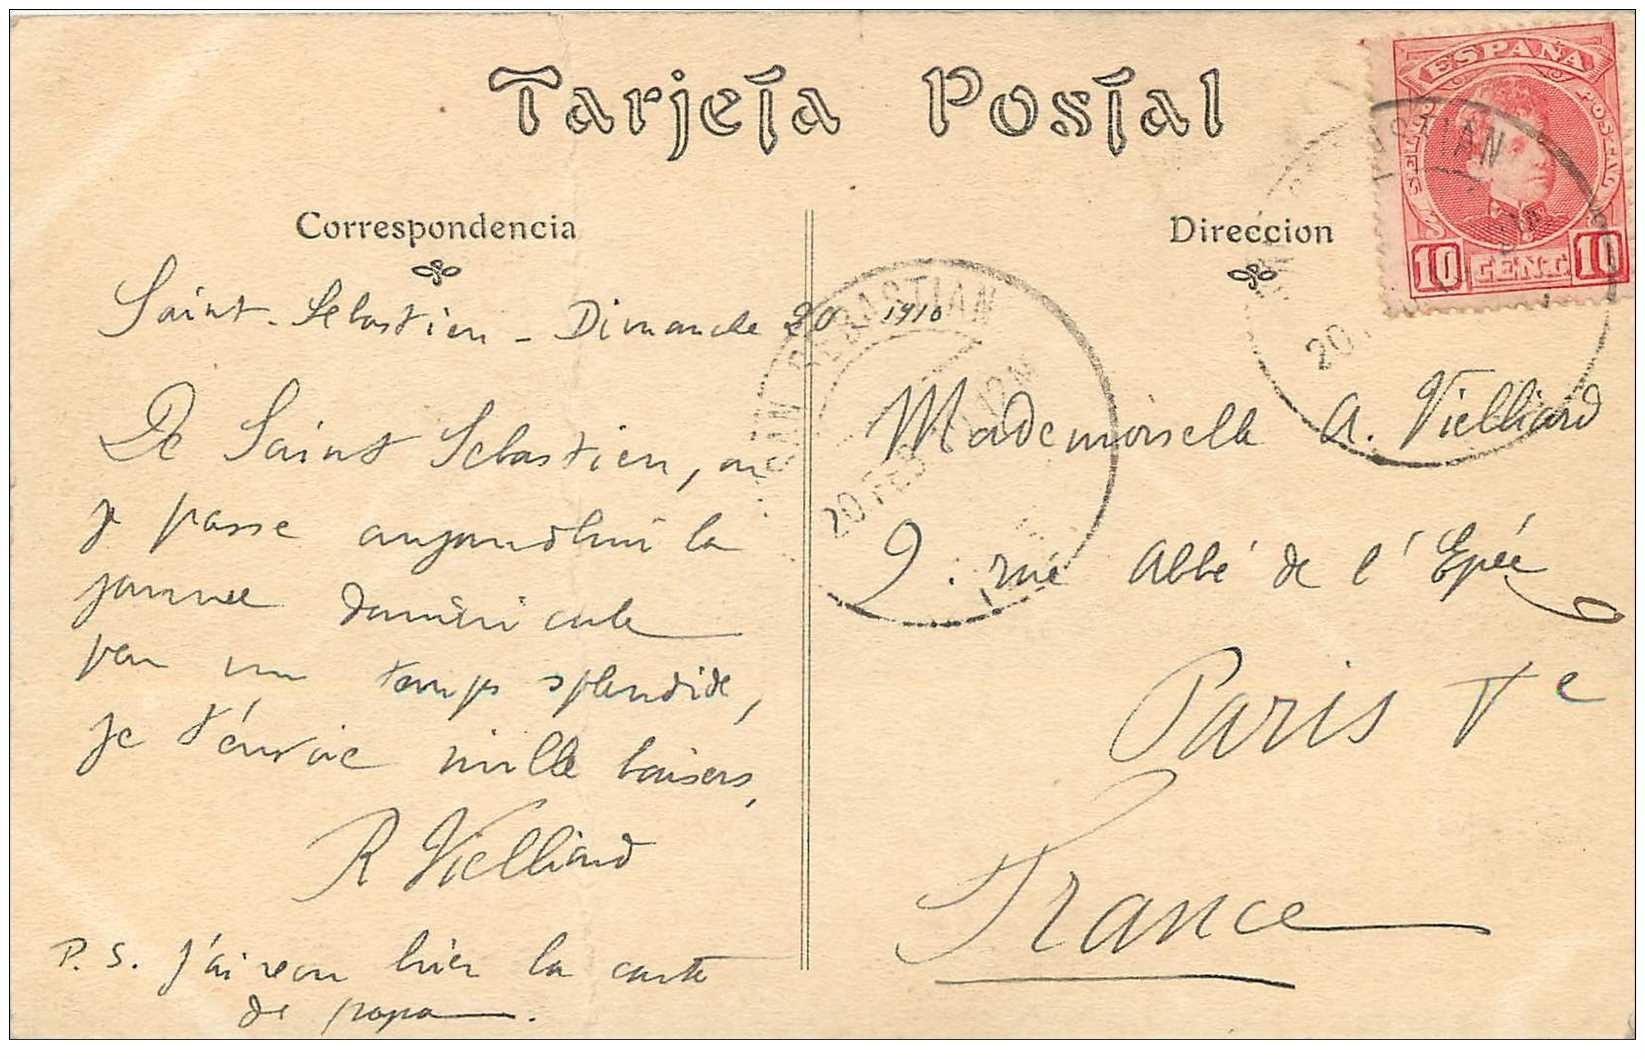 Tarjeta Postal
Correspondencia
Direccion
ESPAÑA
10 CENT. 10
SAN SEBASTIAN
20 FEB
Saint-Sébastien - Dimanche 20 1910
De Saint Sébastien, où
je passe aujourd'hui la
journée dominicale
par un temps splendide,
je t'envoie mille baisers,
R Vielliard
P.S. j'ai reçu hier la carte
de papa.
Mademoiselle A. Vielliard
9. rue Abbé de l'Epée
Paris Ve
France